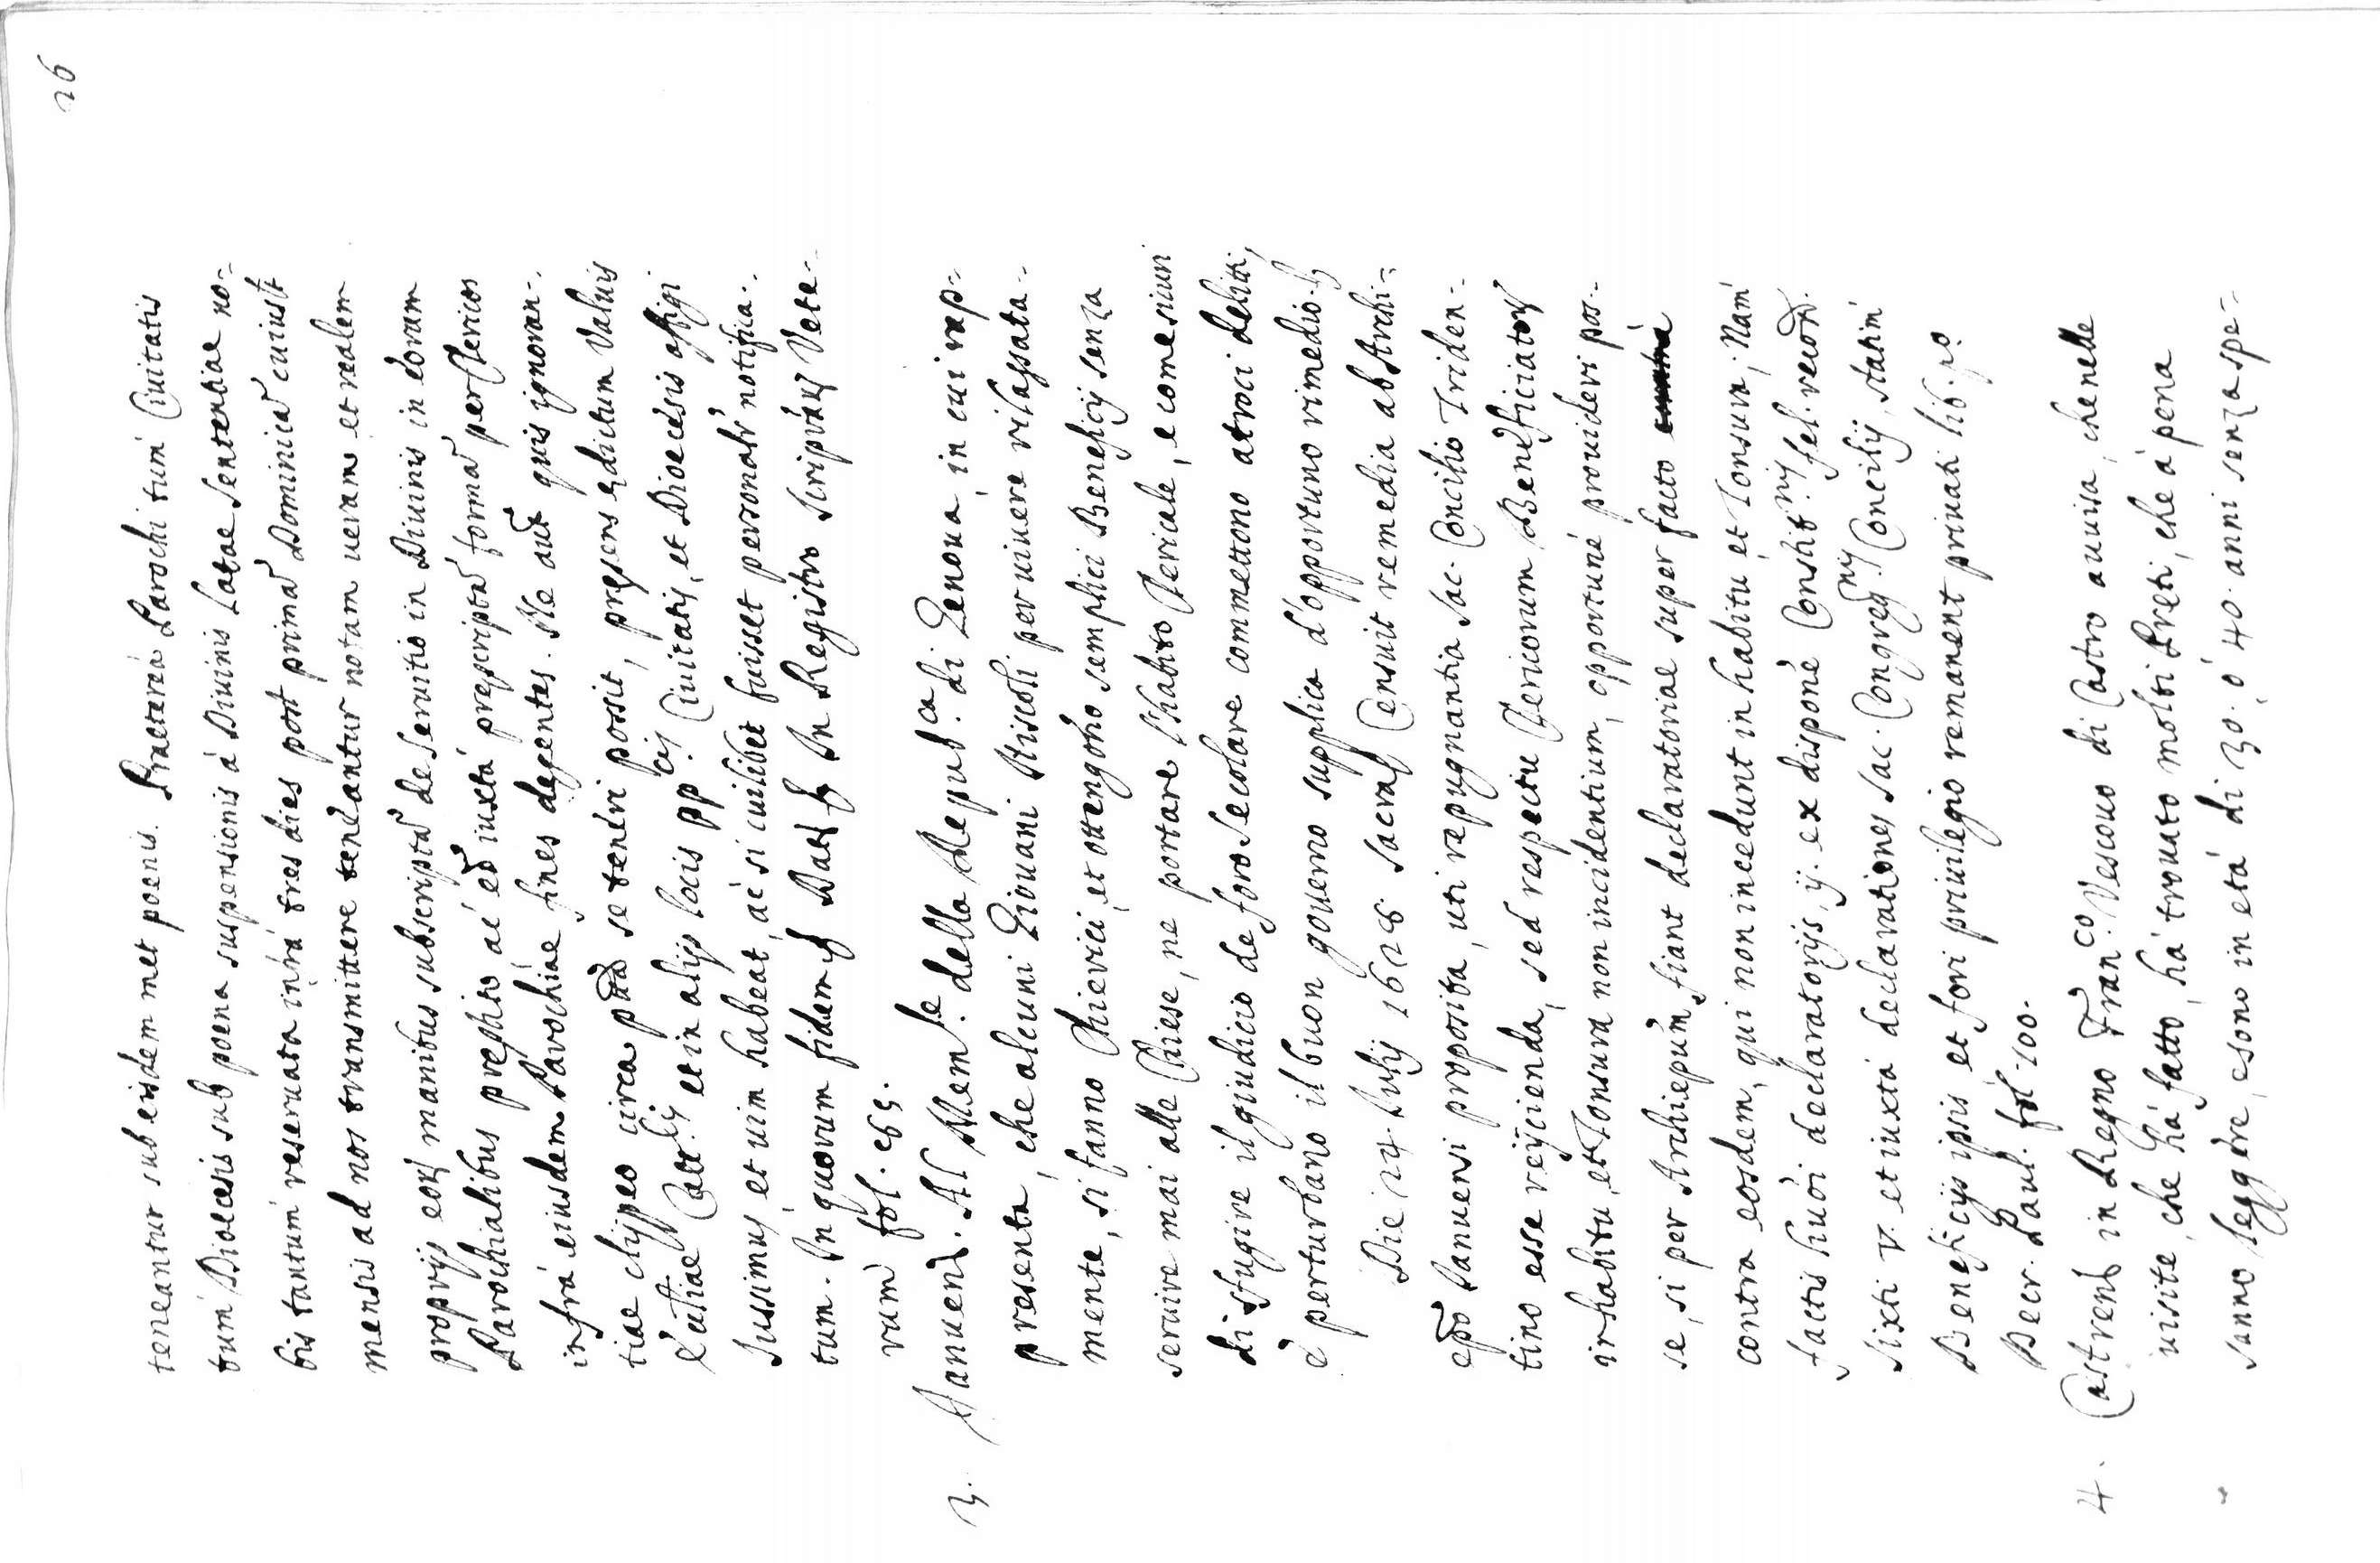 26
teneantur sub eisdem met poenis. Praetereà Parochi tum Ciuitatis
tum Dioecesis sub poena suspensionis à Diuinis latae sententiae no-
bis tantum reseruata infrà tres dies post primā Dominicā cuiuslt
mensis ad nos transmittere teneantur notam ueram et realem
proprijs eoꝝ manibus subscriptā de seruitio in Diuinis in eoram
Parochialibus prestito ac et iuxtà prescriptā formā per Clericos
infrà eiusdem Parochiae fines degentes. Ne aut quis ignoran-
tiae clypeo circa pta se tenèri possit, presens edictum Valuis
Cath.lis et in alijs locis pp.cis Ciuitatis, et Dioecesis affigi
Iussimus, et uim habeat, ac si cuilibet fuisset personalr notifica-
tum. In quorum fidem &
 Dat & In Registro scripturaꝝ Vete-
rum fol. 
3. Januen. Al Mem.le della Repub.ca di Genoua, in cui rap-
presenta, che alcuni Giouani Discoli per uiuere rilassata-
mente, si fanno Chierici, et ottengono semplici Beneficij senza
seruire mai alle Chiese, ne portare l'habito Clericale, e come sicuri
di sfugire il giudicio de foro secolare commettono atroci delitti,
è perturbano il buon gouerno supplica d'opportuno rimedio. &
Die 24. Iulij 1628. Sacra & Censuit remedia ab Archi-
epō Januensi proposita, uti repugnantia Sac. Concilio Triden-
tino esse reijcienda, sed respectu Clericorum Beneficiatoꝝ
in habitu, et Tonsura non incidentium, opportunè prouideri pos-
se, si per Archiepūm fiant declaratoriae super facto
contra eosdem, qui non incedunt in habitu, et Tonsura, Nam
factis huòi declaratorijs, ij. ex disponè Constit.nis fel. record.
Sixti V. et iuxtà declarationes Sac. Congreg.nis Concilij, statim
Beneficijs ipsis et fori priuilegio remanent priuati lib. po.
Decr. Paul. fol. 100.
4. Castren in Regno Fran.co Vescouo di Castro auuisa, che nelle
uisite, che hà fatto, hà trouato molti Preti, che à pena
sanno leggere, e sono in età di 30. ò 40. anni senza spe-